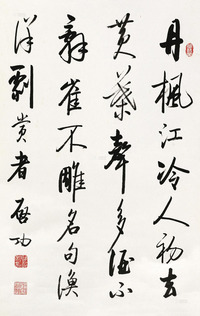 丹楓江冷人初去
黄葉聲多酒不
辭崔不雕名句漁
洋劇賞者啟功